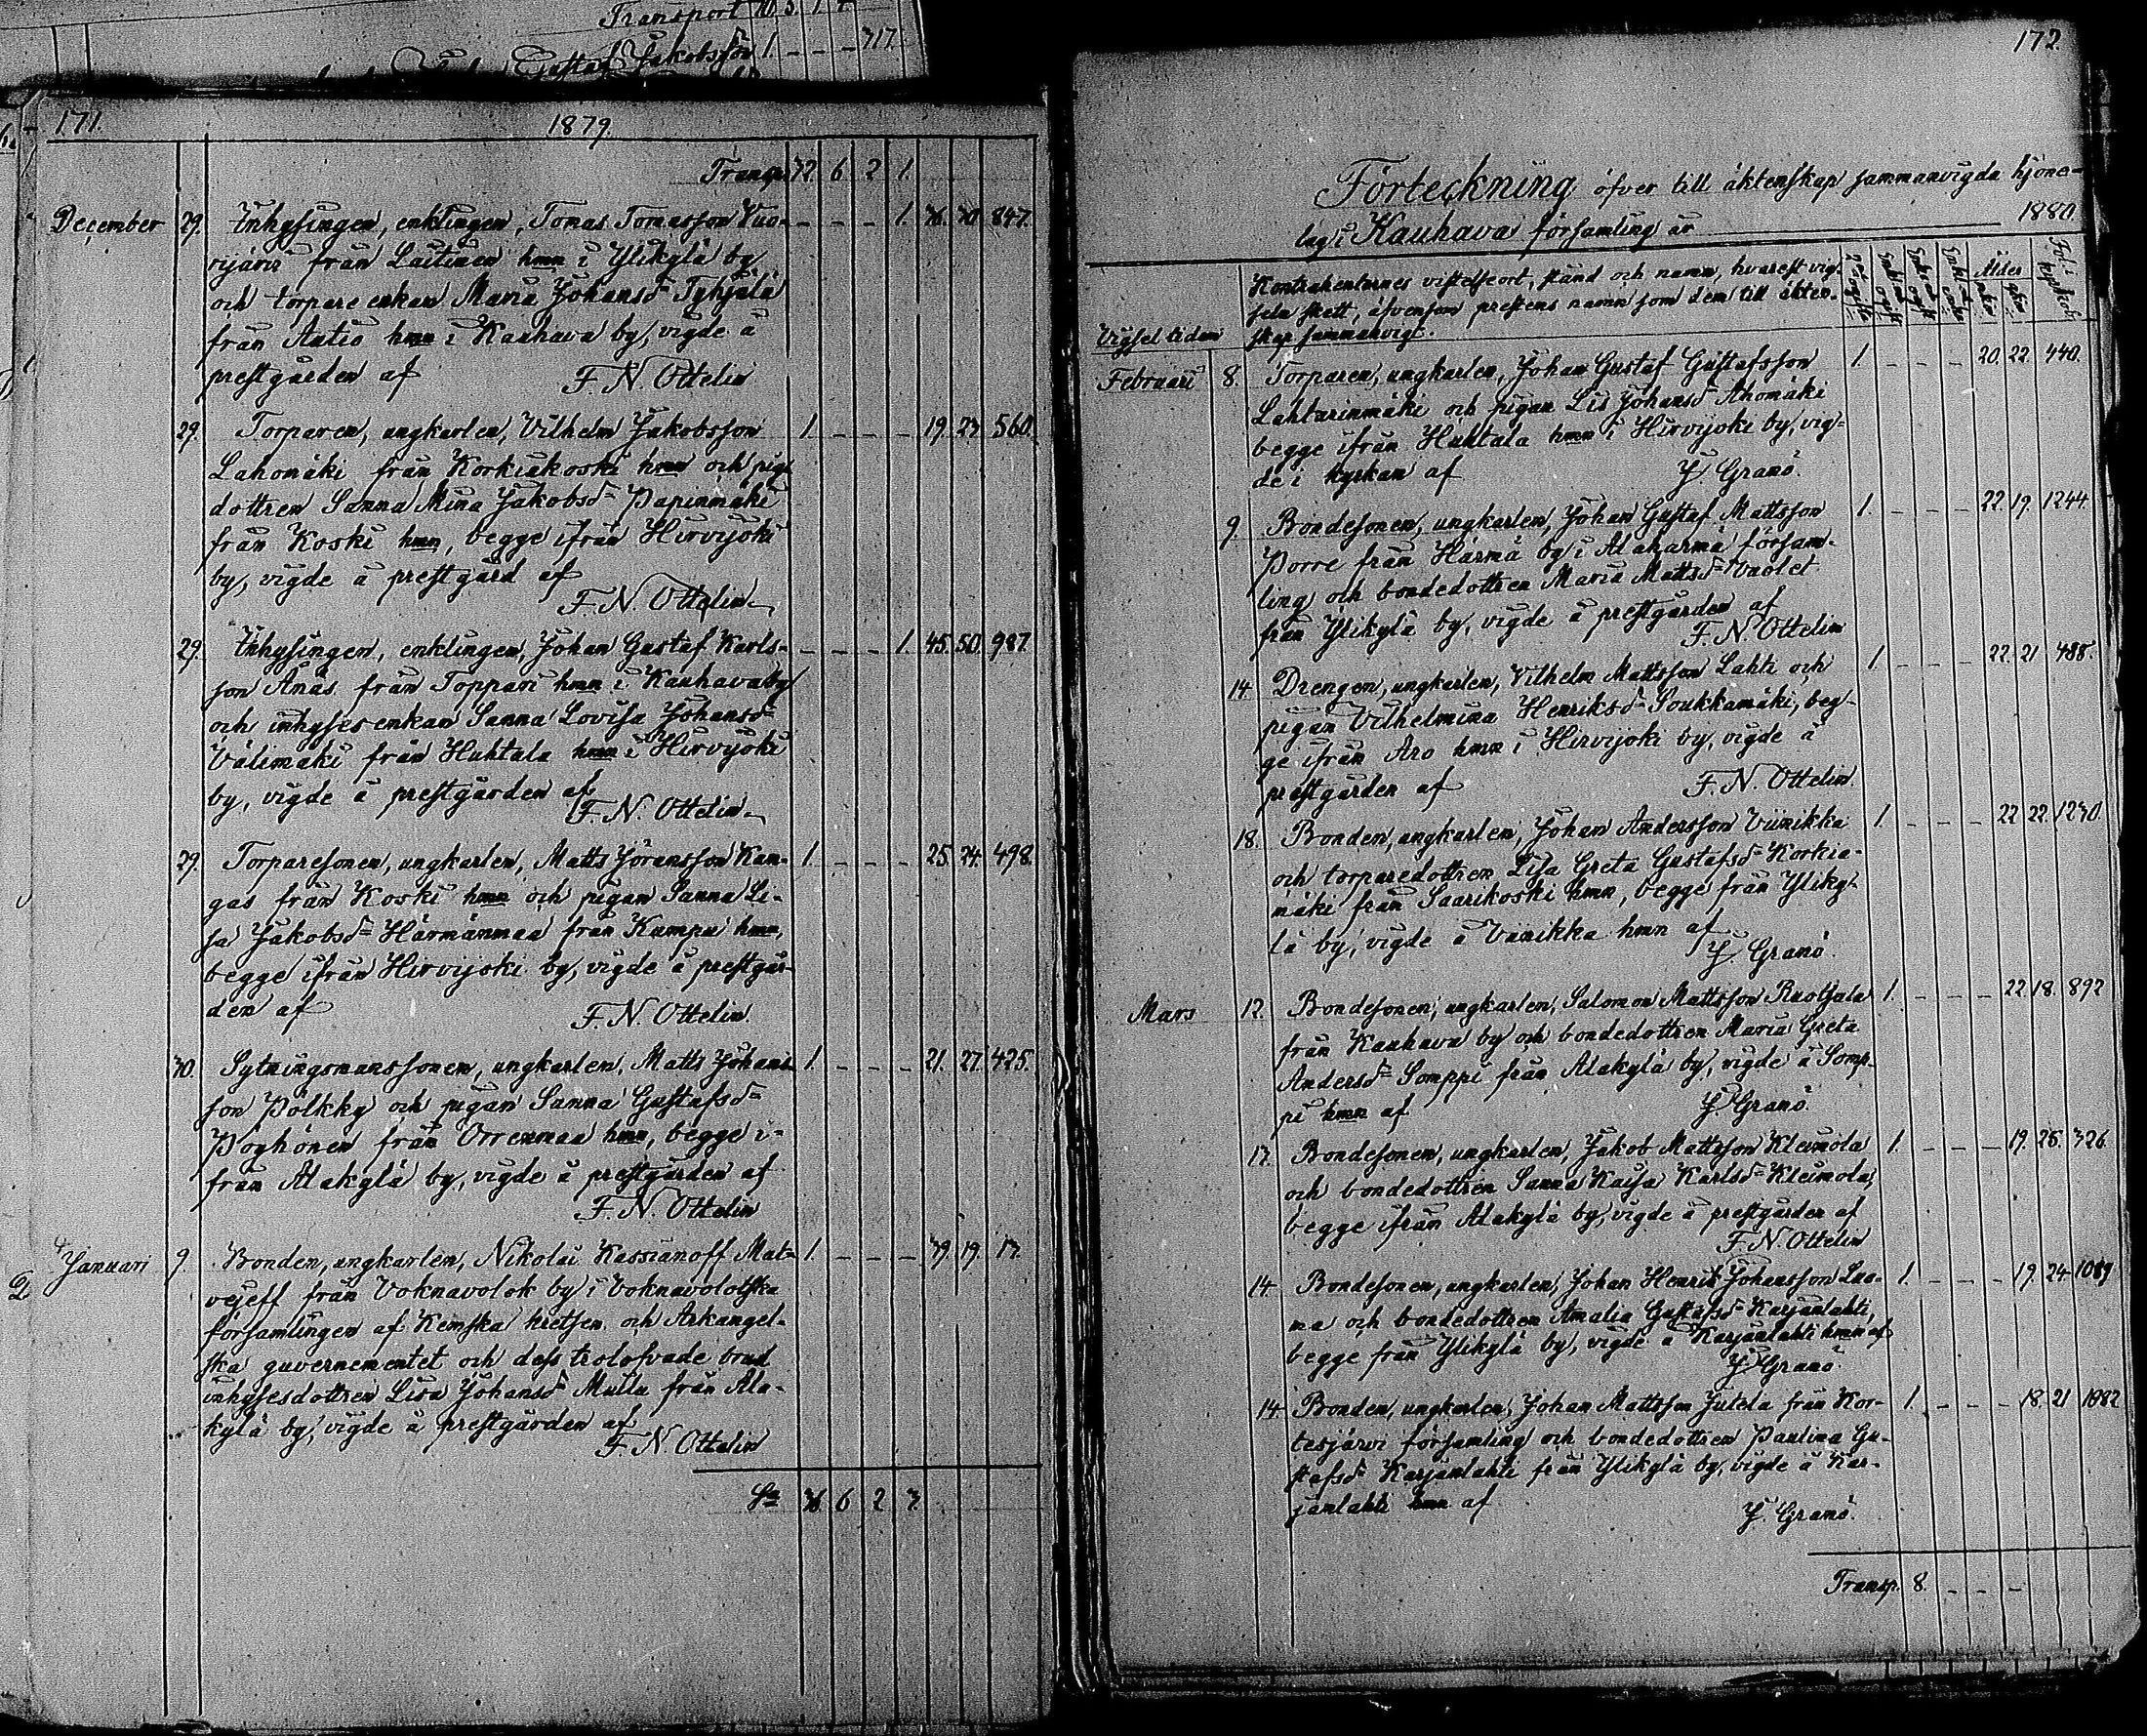 Transport 70. 5. 1. 
Gustaf Jakobsson 1. – – – 317.
171. 1879.
Transp. 32. 6 2 1.
December 29. Inhysingen, enklingen, Tomas Tomasson Vuo- – – – 1. 36. 30. 847.
rijärvi från Laitinen hmn i Ylikylä by
och torpare enkan Maria Johansd= Tyhjälä
från Autio hmn i Kauhava by, vigde å
prestgården af F. N. Ottelin
29. Torparen, ungkarlen, Vilhelm Jakobsson 1. – – – 19. 23. 560.
Lahomäki från Korkiakoski hmn och pig
dottren Sanna Mina Jakobsd= Papinmäki
från Koski hmn, begge ifrån Hirvijoki
by, vigde å prestgård af
F. N. Ottelin
29. Inhysingen, enklingen, Johan Gustaf Karls- – – – 1. 45. 50. 987.
son Ånäs från Toppari hmn i Kauhava by
och inhyses enkan Sanna Lovisa Johansd=
Välimäki från Huhtala hmn i Hirvijoki
by, vigde å prestgården af
F. N. Ottelin
29. Torparesonen, ungkarlen, Matts Jöransson Kan- 1. – – – 25. 24. 498.
gas från Koski hmn och pigan Sanna Li-
sa Jakobsd= Härmänmaa från Kumpu hmn,
begge ifrån Hirvijoki by, vigde å prestgår-
den af F. N. Ottelin.
30. Sytningsmanssonen, ungkarlen, Matts Johans- 1. – – – 21. 27. 425.
son Pölkky och pigan Sanna Gustafsd=
Pöyhönen från Orrenmaa hmn, begge i-
från Alakylä by, vigde å prestgården af
F. N. Ottelin
Januari 9. Bonden, ungkarlen, Nikolai Kassianoff Mat- 1. – – – 39. 19. 13.
vejeff från Voknavolok by i Voknavolotska
församlingen af Kemska kretsen och Arkangel-
ska guvernementet och dess trolofvade brud
inhysesdottren Lisa Johansd= Mulla från Ala-
kylä by, vigde å prestgården af
F. N. Ottelin
Sa 36. 6 2 3.
172.
Förteckning öfver till äktenskap sammanvigda hjone-
lag i Kauhava församling år 1880.
Vigsel tiden
Kontrahenternes vistelseort, stånd och namn, hvarest vig-
seln skett, äfvensom prestens namn som dem till äkten-
skap sammanvigt.
Ålder
Februari 8. Torparen, ungkarlen, Johan Gustaf Gustafsson 1. – – – 20. 22. 440.
Lahtarinmäki och pigan Lis Johansd= Ahomäki
begge ifrån Huhtala hmn i Hirvijoki by, vig-
de i kyrkan af J. Granö.
9. Bondesonen, ungkarlen, Johan Gustaf Mattsson 1. – – – 22. 19. 1244.
Porre från Härmä by i Alahärmä försam-
ling och bondedottren Maria Mattsd=
från Ylikylä by, vigde å prestgården af
F. N. Ottelin
14. Drengen, ungkarlen, Vilhelm Mattsson Lahti och 1. – – – 22. 21 488.
pigan Vilhelmina Henriksd= Soukkamäki, beg-
ge ifrån Aro hmn i Hirvijoki by, vigde å
prestgården af F. N. Ottelin.
18. Bonden, ungkarlen, Johan Andersson Viinikka 1. – – – 22 22. 1230.
och torparedottren Lisa Greta Gustafsd= Korkia-
mäki från Saarikoski hmn, begge från Ylikyl-
lä by, vigde å Viinikka hmn af
J. Granö.
Mars 12. Bondesonen, ungkarlen, Salomon Mattsson Ruotsala 1. – – – 22 18. 892
från Kauhava by och bondedottren Maria Greta
Andersd= Somppi från Alakylä by, vigde å Somp-
pi hmn af J. Granö.
13. Bondesonen, ungkarlen, Jakob Mattsson Kleimola 1. – – – 19. 25. 326.
och bondedottren Sanna Kaisa Karlsd= Kleimola,
begge ifrån Alakylä by, vigde å prestgården af
F. N. Ottelin
14. Bondesonen, ungkarlen, Johan Henrik Johansson Laa- 1. – – – 19. 24. 1089
ma och bondedottren Amalia Gustafsd= Karjanlahti,
begge från Ylikylä by, vigde å Karjanlahti hmn af
J. Granö.
14. Bonden, ungkarlen, Johan Mattsson Jutela från Kor- 1. – – – 18. 21 1082
tesjärvi församling och bondedottren Paulina Gu-
stafsd= Karjanlahti från Ylikylä by, vigde å Kar-
janlahti hmn af
J. Granö.
Transp. 8. – – –